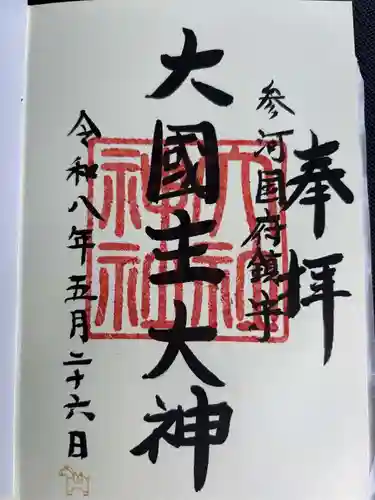 奉拝
参河国府鎮守
大國主大神
大神神社
令和八年五月二十六日